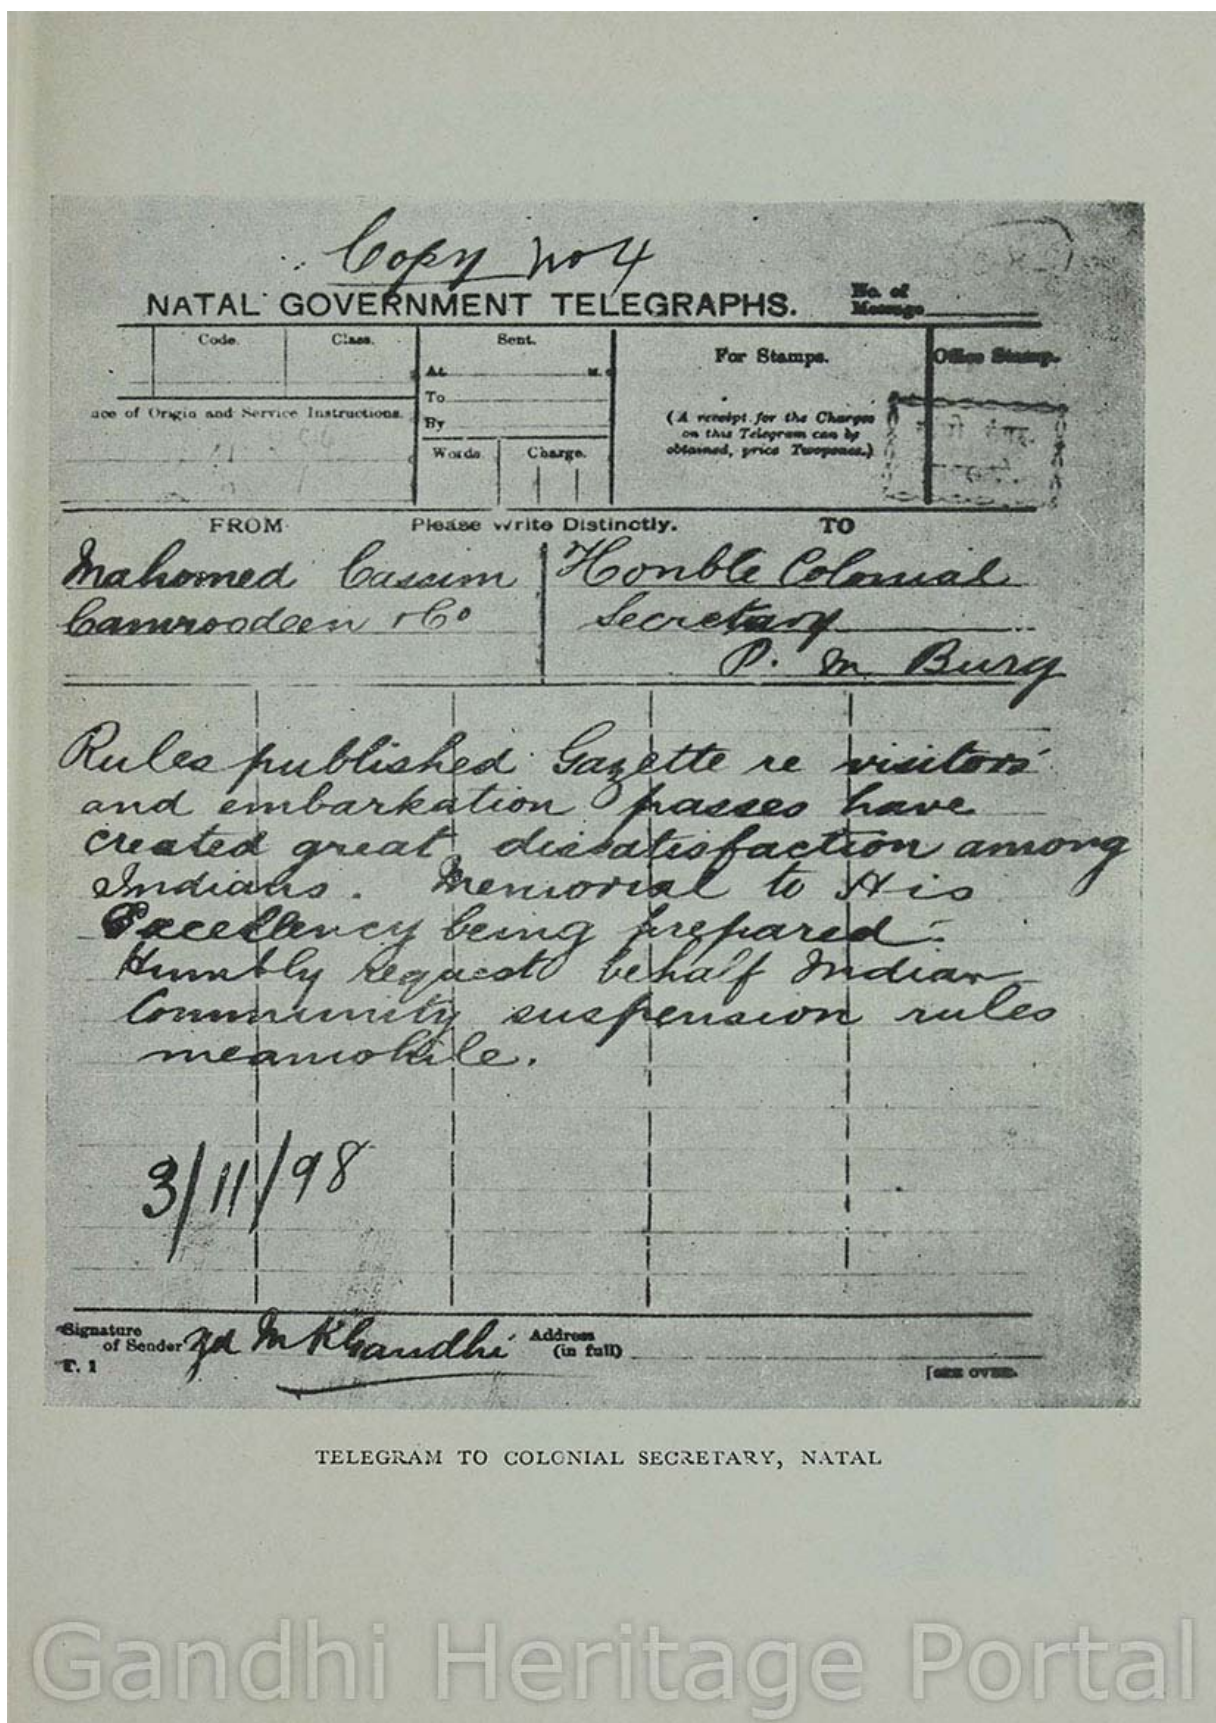 Copy No 4
NATAL GOVERNMENT TELEGRAPHS.
No. of
Message
Code.
Class.
Sent.
At M.
To
By
Words
Charge.
For Stamps.
(A receipt for the Charges
on this Telegram can be
obtained, price Twopence.)
Office Stamp.
ace of Origin and Service Instructions.
FROM Please Write Distinctly. TO
Mahomed Cassim
Camroodeen & Co
Honble Colonial
Secretary
P. M Burg
Rules published Gazette re visitors'
and embarkation passes have
created great dissatisfaction among
Indians. Memorial to His
Excellency being prepared.
Humbly request behalf Indian
Community suspension rules
meanwhile.
3/11/98
Signature
of Sender
M K Gandhi
Address
(in full)
T. 1
[SEE OVER.
TELEGRAM TO COLONIAL SECRETARY, NATAL
Gandhi Heritage Portal